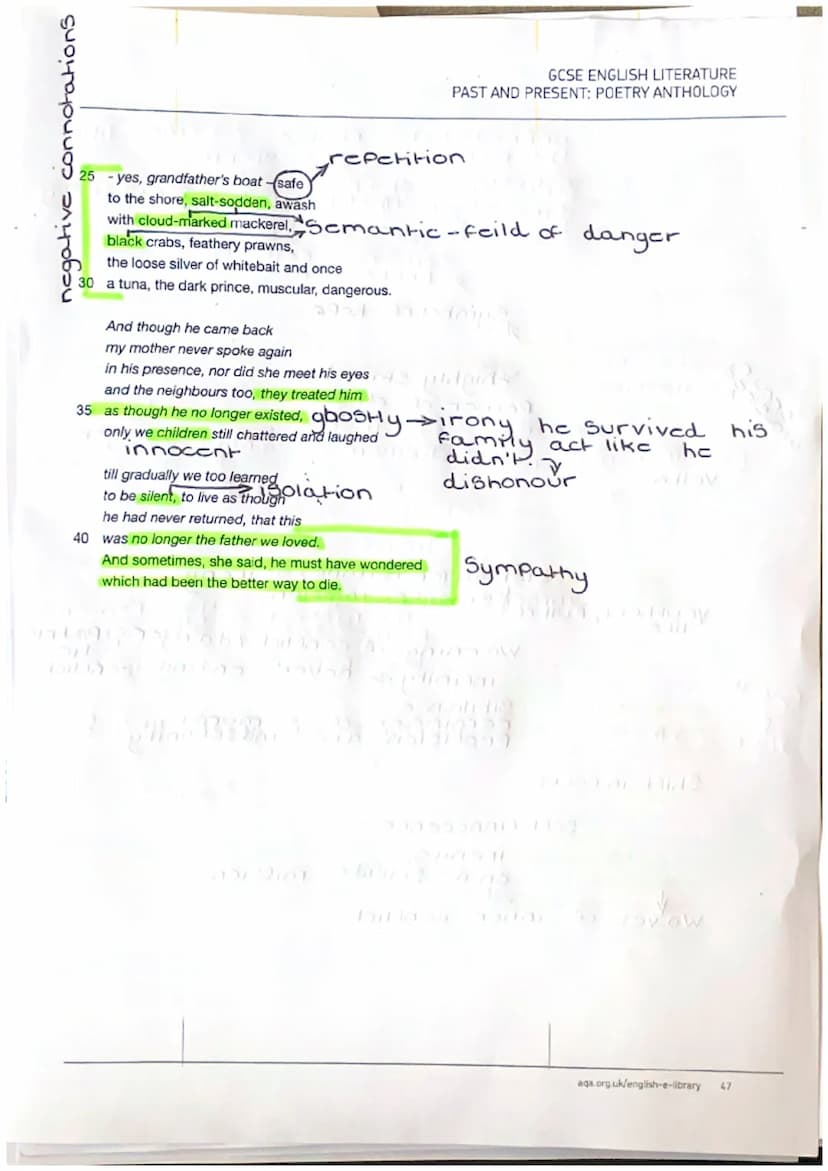 negative connotations
GCSE ENGLISH LITERATURE
PAST AND PRESENT: POETRY ANTHOLOGY
repetition
25 - yes, grandfather's boat – safe
to the shore, salt-sodden, awash
with cloud-marked mackerel,
Semantic-feild of danger
black crabs, feathery prawns,
the loose silver of whitebait and once
30 a tuna, the dark prince, muscular, dangerous.
And though he came back
my mother never spoke again
in his presence, nor did she meet his eyes
and the neighbours too, they treated him
35 as though he no longer existed,
ghostly → irony he survived his
family act like he
didn't.
dishonour
only we children still chattered and laughed
innocent
till gradually we too learned
to be silent, to live as though
isolation
he had never returned, that this
40 was no longer the father we loved.
And sometimes, she said, he must have wondered
which had been the better way to die.
Sympathy
aqa.org.uk/english-e-library 47